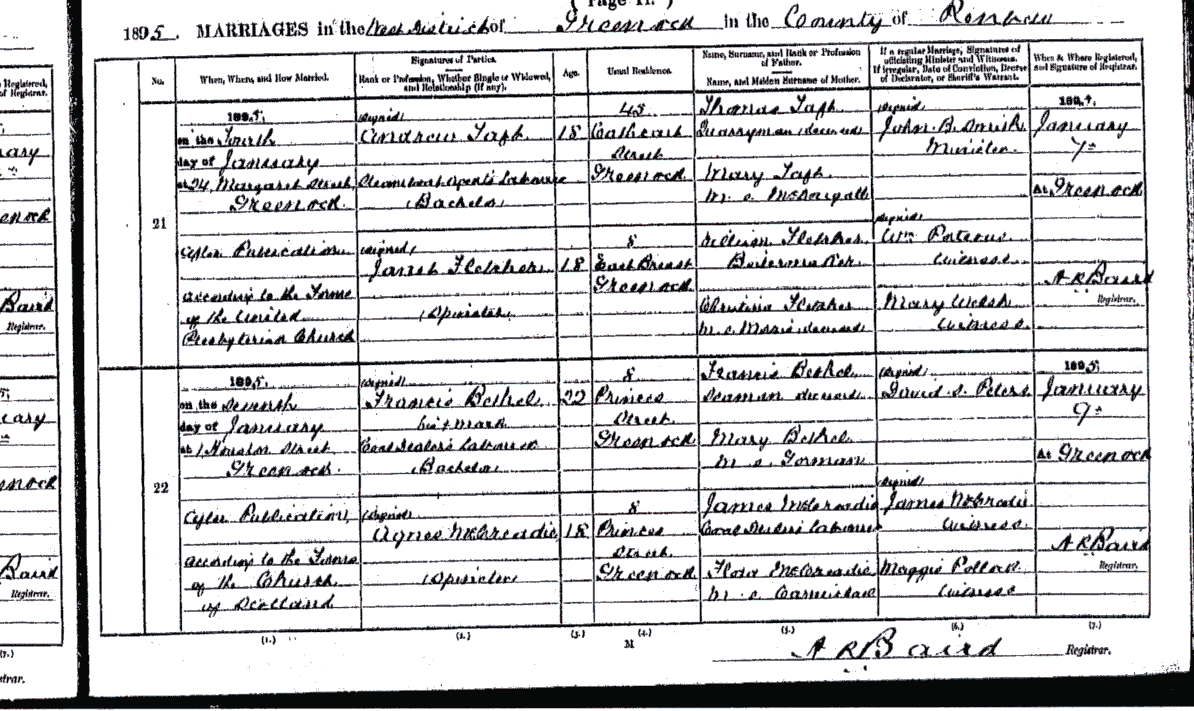 ( Page 11. )
1895. MARRIAGES in the West District of Greenock in the County of Renfrew
Registered,
of Registrar.
No.
When, Where, and How Married.
Signatures of Parties.
Rank or Profession, Whether Single or Widowed,
and Relationship (if any).
Age.
Usual Residence.
Name, Surname, and Rank or Profession
of Father.
Name, and Maiden Surname of Mother.
If a regular Marriage, Signatures of
officiating Minister and Witnesses.
If irregular, Date of Conviction, Decree
of Declarator, or Sheriff's Warrant.
When & Where Registered,
and Signature of Registrar.
21
1895,
on the Fourth
day of January
at 24, Margaret Street,
Greenock.
After Publication
according to the Forms
of the United
Presbyterian Church
(signed)
Andrew Taph
Steamboat Agent's Labourer
(Bachelor)
(signed)
Janet Fletcher
(Spinster)
18
18
43
Cathcart
Street
Greenock
8
East Breast
Greenock
Thomas Taph
Quarryman (deceased
Mary Taph
M. S. McDougall
William Fletcher
Boilermaker
Christina Fletcher
M. S. Morris (deceased
(signed)
John. B. Smith
Minister
(signed)
Wm Porteous
Witness
Mary Welsh
Witness
1895,
January
7th
At Greenock
A R Baird
Registrar.
22
1895,
on the Seventh
day of January
at 1 Houston Street
Greenock.
After Publication,
according to the Forms
of the Church
of Scotland
(signed)
Francis Bethel
his x mark
Coal Dealer's Labourer
(Bachelor
(signed)
Agnes McCreadie
(Spinster
22
18
8
Princes
Street
Greenock
8
Princes
Street
Greenock
Francis Bethel
Seaman deceased
Mary Bethel
M. S. Gorman
James McCreadie
Coal Dealer's Labourer
Flora McCreadie
M. S. Carmichael
(signed)
David. S. Peters
(signed)
James McCreadie
Witness
Maggie Pollock
Witness
1895
January
9th
At Greenock
A R Baird
Registrar.
(1.) (2.) (3.) (4.) (5.) (6.) (7.)
M
A R Baird Registrar.
Baird
Registrar.
Baird
Registrar.
(7.)